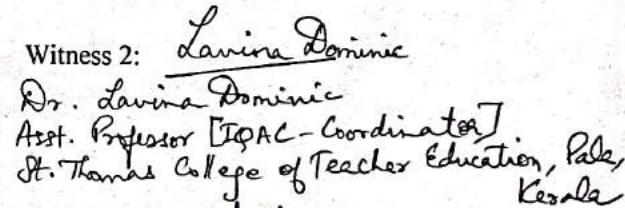 Witness 2: Lavina Dominic
Dr. Lavina Dominic
Asst. Professor [IQAC-Coordinator]
St. Thomas College of Teacher Education, Pala,
Kerala